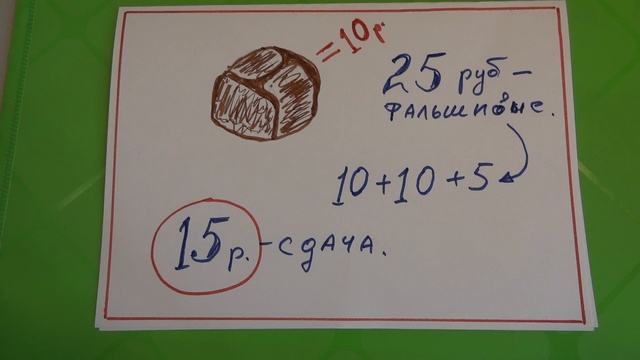 =10 р.
25 руб –
фальшивые.
10+10+5
15 р. – сдача.